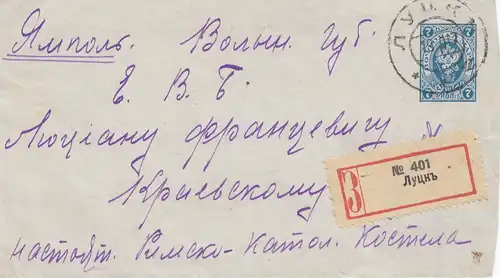 ЛУЦКЪ
Ямполь. Волын. Губ.
Е. В. Б.
Люціану Францевичу
Краевскому
настоят. Римско-Катол. Костела
7 7
7 7
З
№ 401
Луцкъ